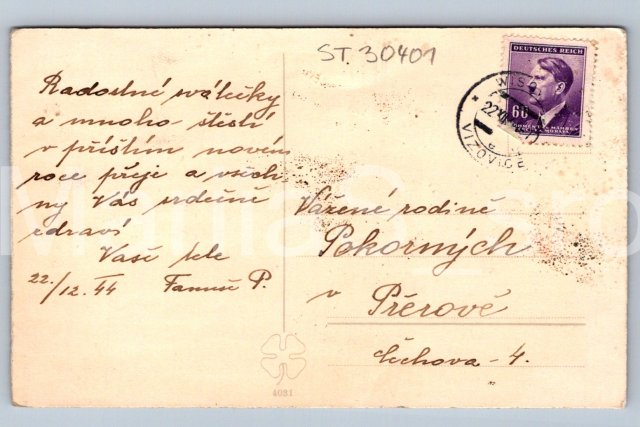 ST. 30401
DEUTSCHES REICH
60
VIZOVICE
Radostné svátečky
a mnoho štěstí
v příštím novém
roce přeje a všech-
ny Vás srdečně
zdraví
Vaše teta
22./12. 44 Fanuše P.
Vážené rodině
Pokorných
v
Přerově
Čechova 4.
4031